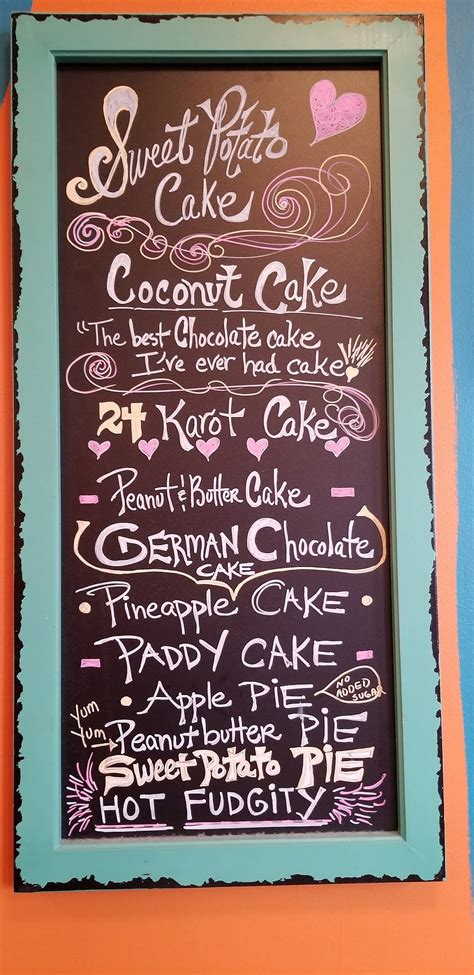 Sweet Potato
Cake
Coconut Cake
"The best Chocolate cake
I've ever had cake
24 Karot Cake
Peanut & Butter Cake
GERMAN Chocolate
CAKE
Pineapple CAKE
PADDY CAKE
Apple PiE
NO
ADDED
SUGAR
Yum
Yum
Peanutbutter PIE
Sweet Potato PiE
HOT FUDGITY